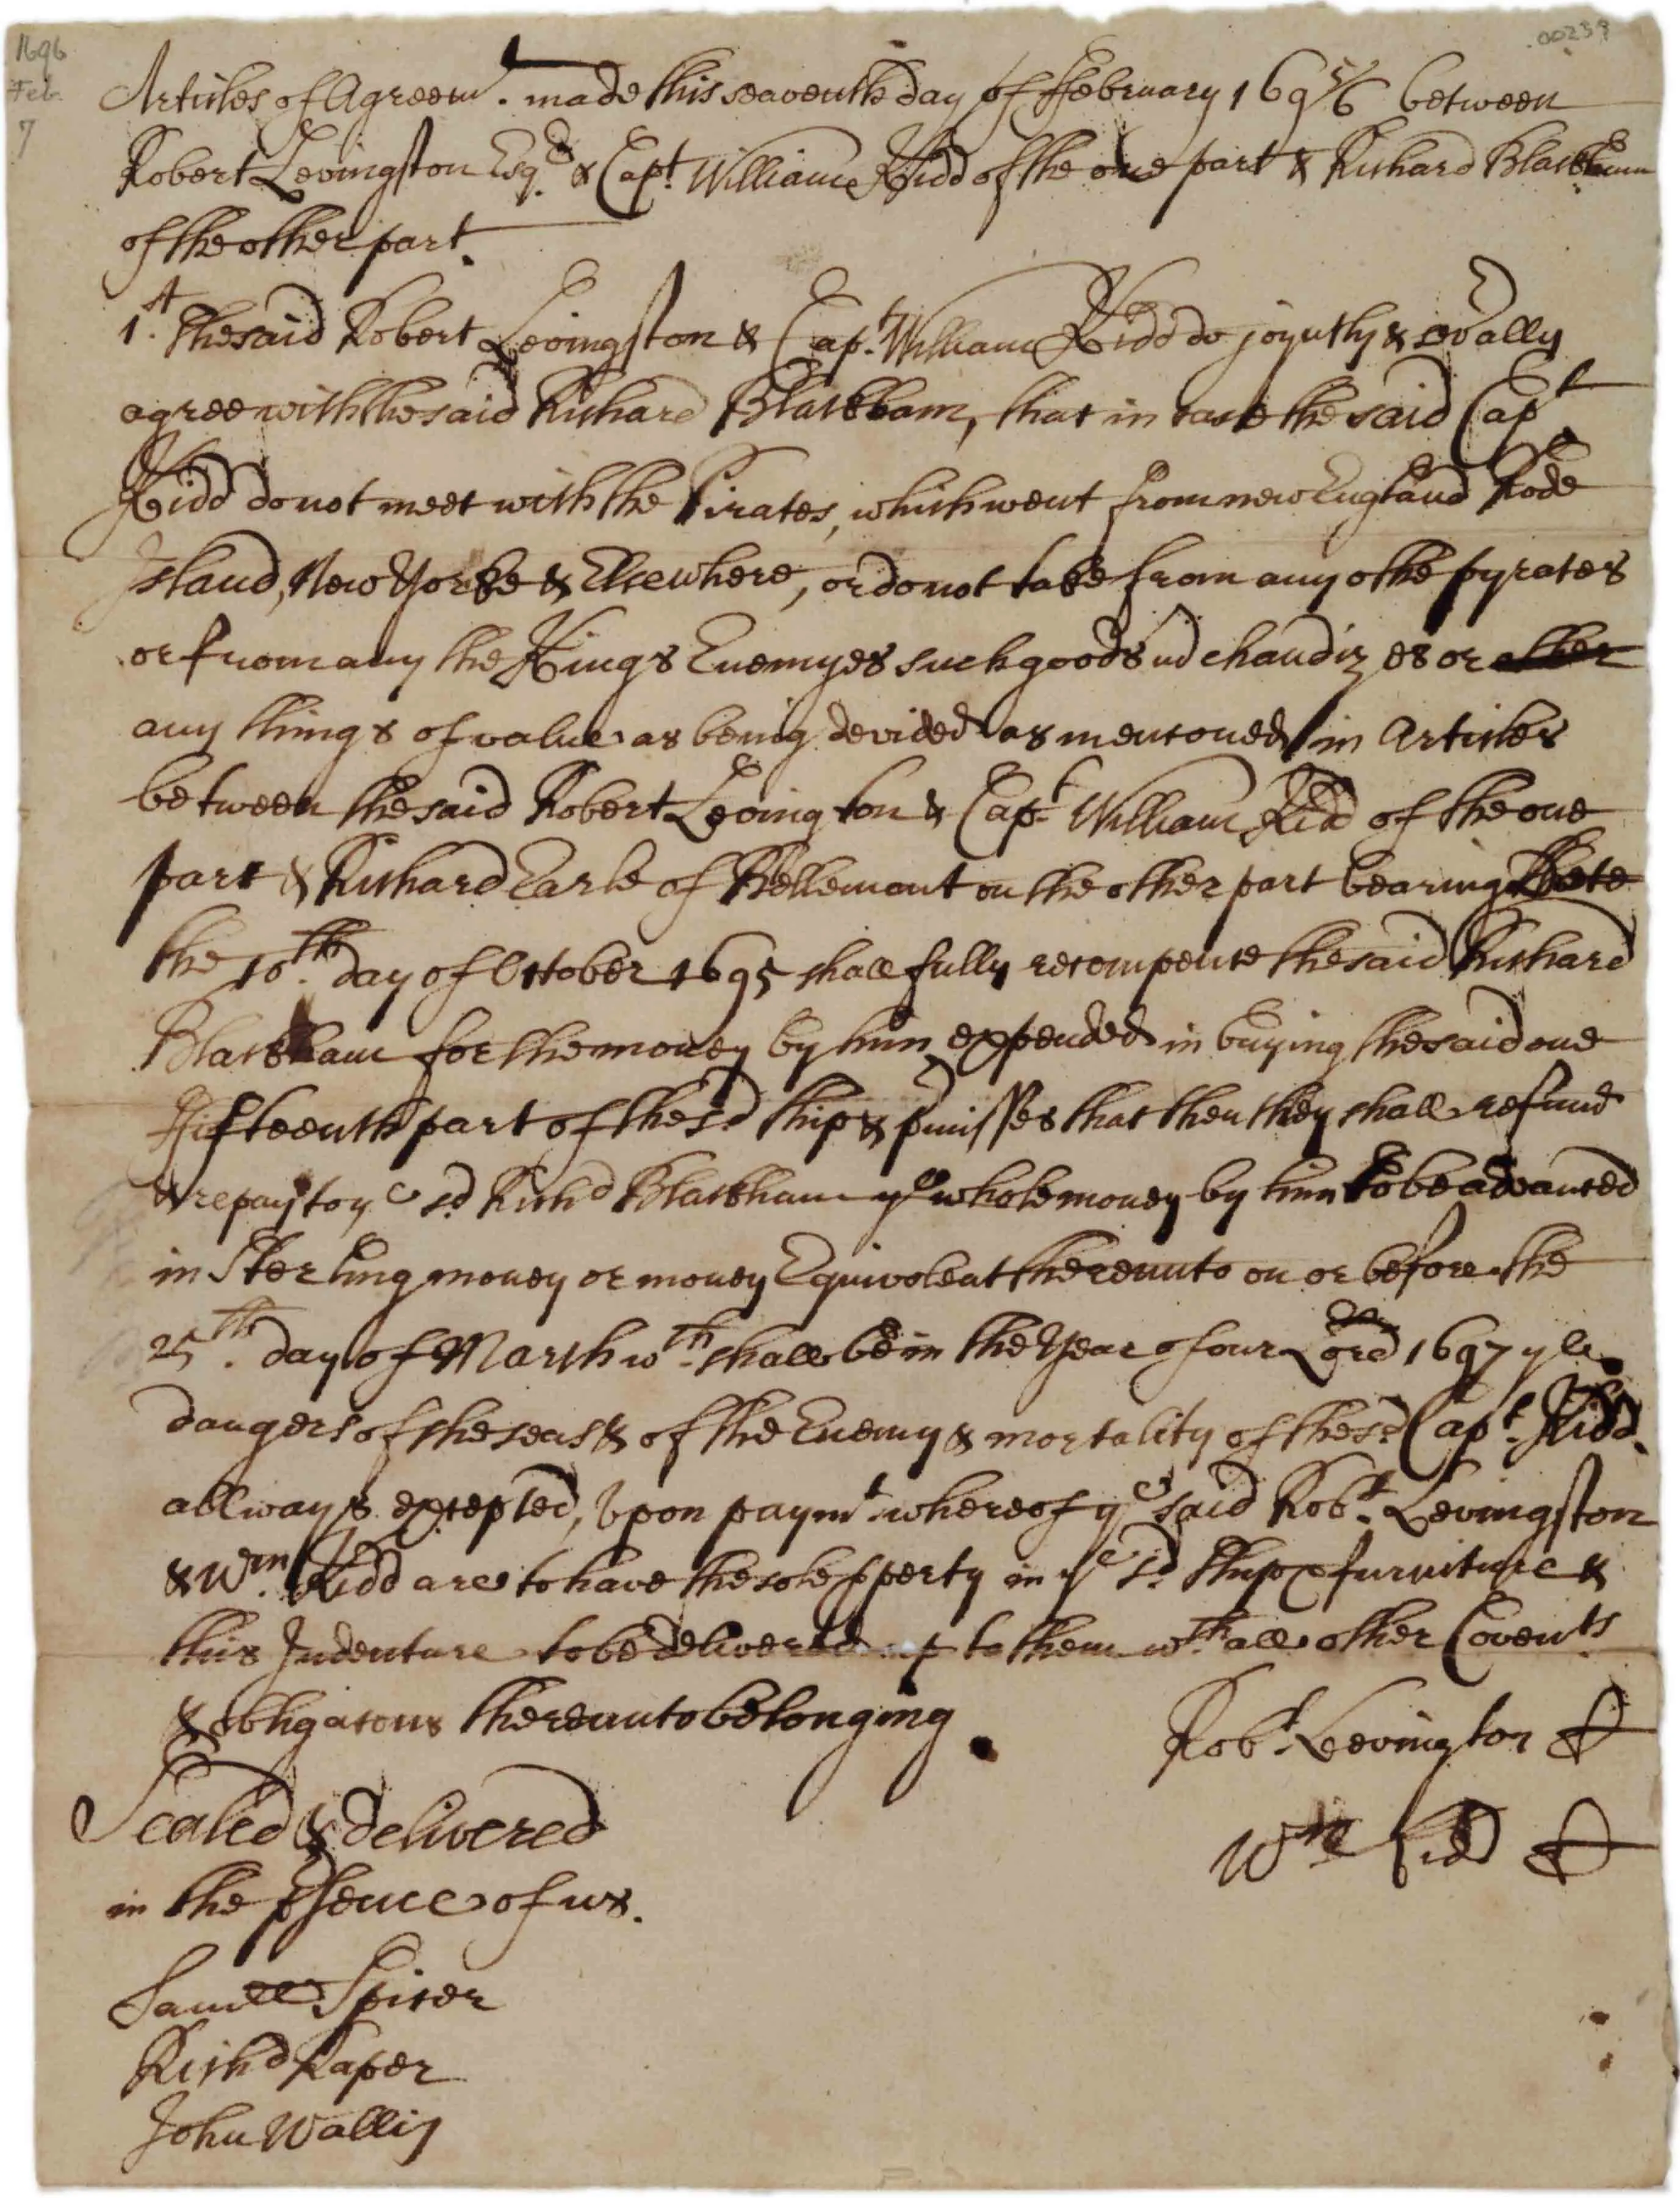 1696
Feb.
7
.00239
Articles of Agreemt. made this seaventh day of ffebruary 169 5/6 between
Robert Levingston Esqr. & Capt. William Kidd of the one part & Richard Blackham
of the other part.
1st. The said Robert Levingston & Capt. William Kidd do joyntly & sevally
agree with the said Richard Blackham, that in case the said Capt.
Kidd do not meet with the Pirates, which went from new England Rode
Island, New Yorke & Elsewhere, or do not take from any othe pyrates
or from any the Kings Enemyes such goods mchandizes or other
any things of value as being devided as mentoned in Articles
between the said Robert Levington & Capt. William Kidd of the one
part & Richard Earle of Bellemont on the other part bearing Date
the 10th. day of October 1695 shall fully recompence the said Richard
Blackham for the money by him expended in buying the said one
ffifteenth part of the sd. Ship & pmisses that then they shall refund
& repay to ye sd. Richd Blackham ye whole money by him to be advanced
in Sterling money or money Equivolent thereunto on or before the
25th. day of March wch. shall be in the Year of our Lord 1697 ye
dangers of the seas & of the Enemy & mortality of the sd. Capt. Kidd
allways excepted, Upon paymt. whereof ye said Robt. Levingston
& Wm. Kidd are to have the sole pperty in ye sd. Ship & furniture &
this Indenture to be delivered up to them wth. all other Covents.
& obligatons thereunto belonging.
Robt. Levington
Sealed & delivered
Wm Kidd
in the psence of us.
Samll Spicer
Richd Raper
John Wallis